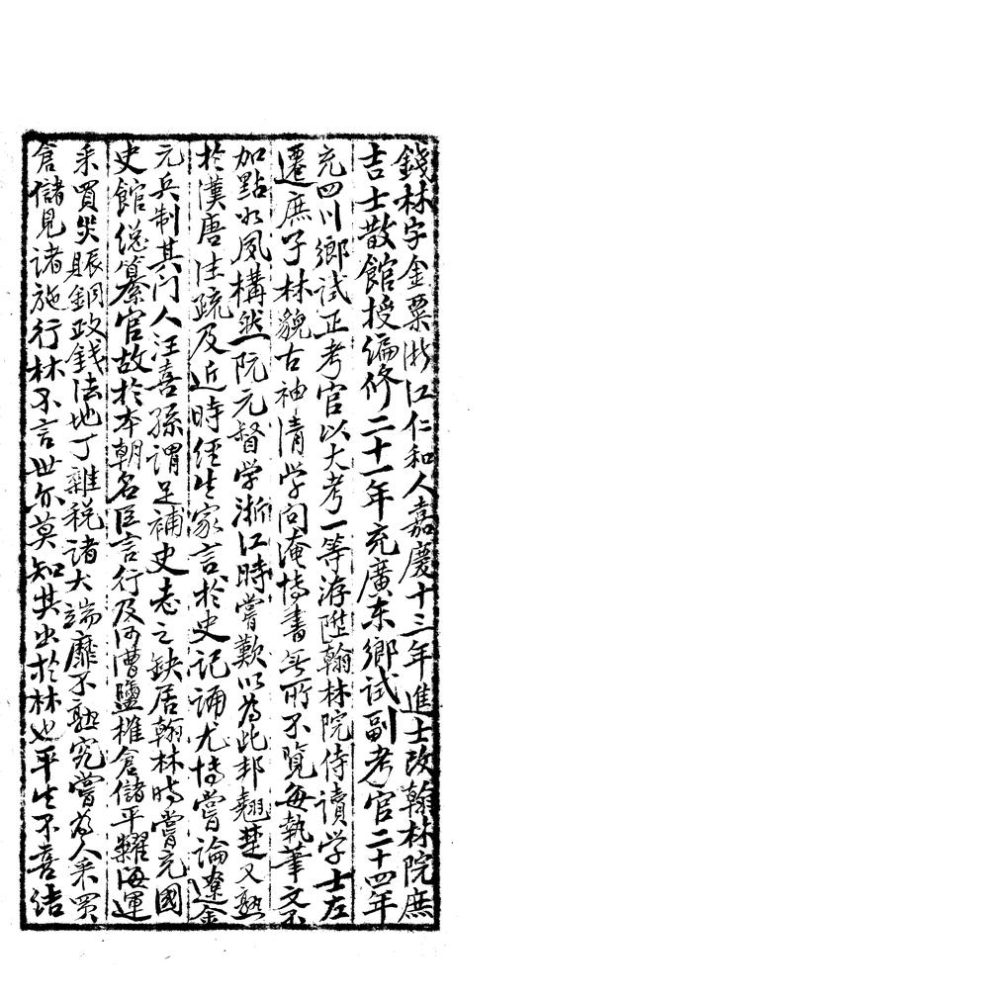 錢林字金粟浙江仁和人嘉慶十三年進士改翰林院庶
吉士散館授编修二十一年充廣东鄉試副考官二十四年
充四川鄉試正考官以大考一等洊陞翰林院侍讀学士左
遷庶子林貌古神清学问淹博書无所不覧每執筆文不
加點如風構然阮元督学浙江時嘗歎以为此邦翹楚又熟
於漢唐注疏及近時经生家言於史记誦尤博嘗論遼金
元兵制其门人汪喜孫謂足補史志之缺居翰林時嘗充國
史館総纂官故於本朝名臣言行及河漕鹽榷倉儲平糶海運
采買災賑銅政錢法地丁雜税諸大端靡不熟究嘗为人采買
倉儲見诸施行林不言世尔莫知其出於林也平生不喜结